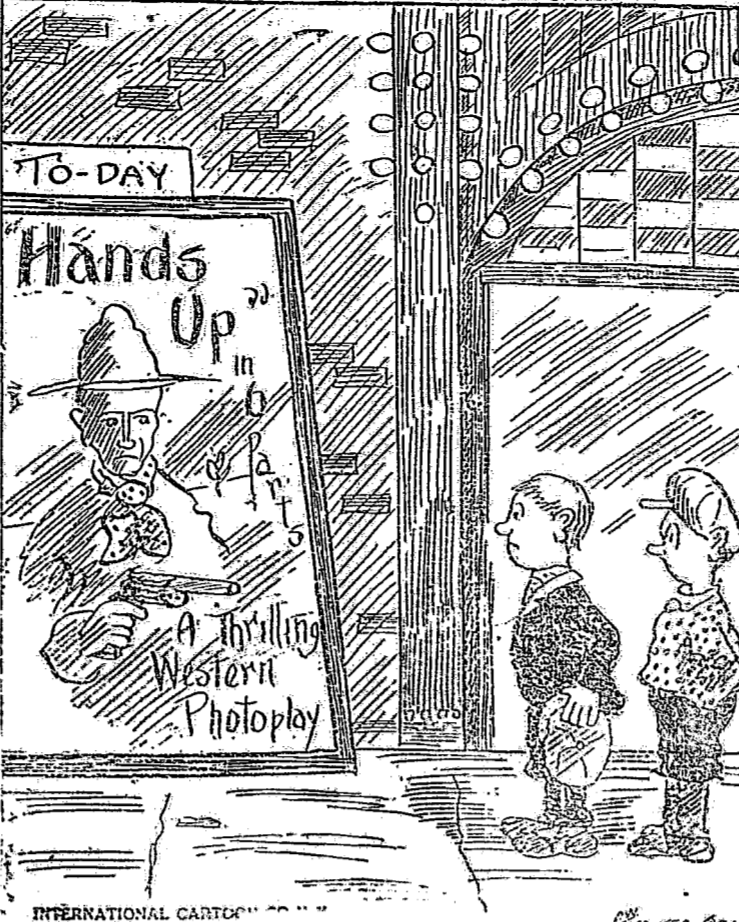 TO-DAY
"Hands
Up"
in
6
Parts
A Thrilling
Western
Photoplay
INTERNATIONAL CARTOON CO. N.Y.